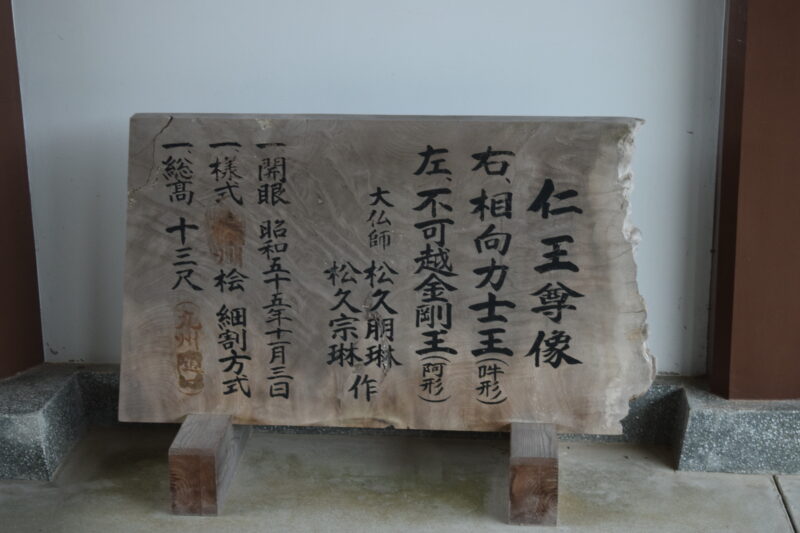 仁王尊像
右、相向力士王(吽形)
左、不可越金剛王(阿形)
大仏師 松久朋琳
松久宗琳 作
一、開眼 昭和五十五年十一月三日
一、様式 州桧 細割方式
一、総高 十三尺
(九州